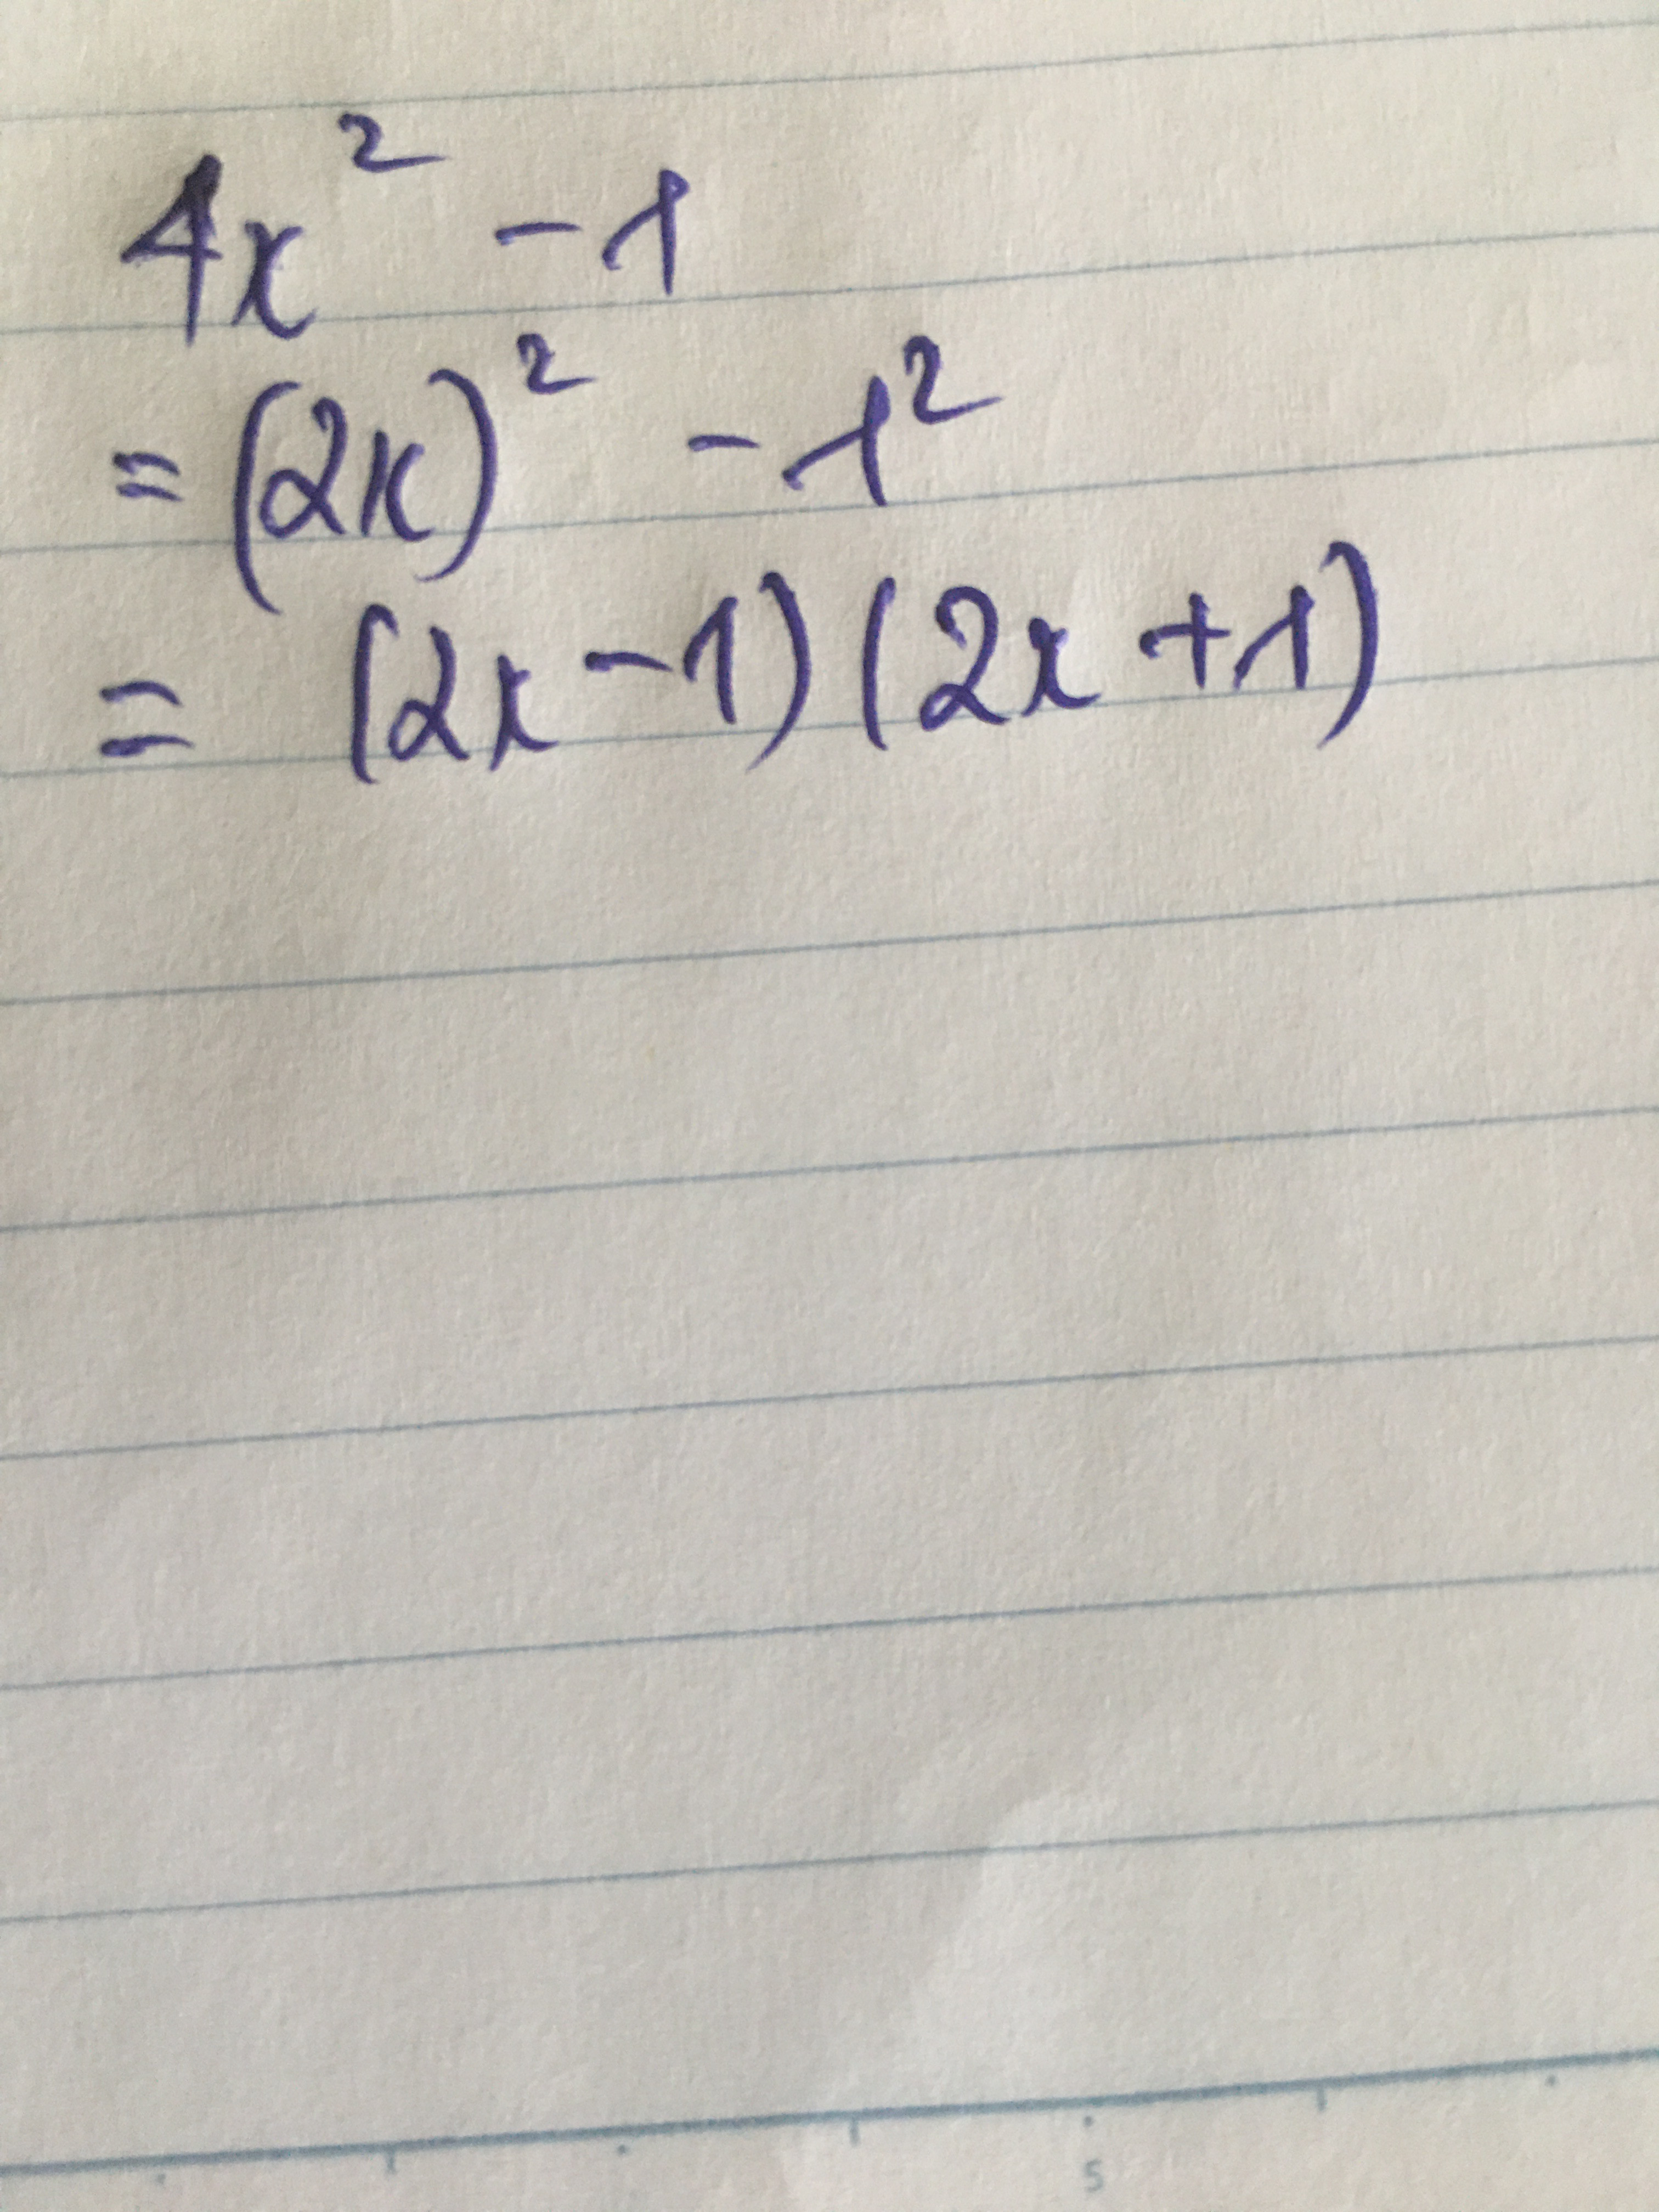 4x² - 1
= (2x)² - 1²
= (2x - 1) (2x + 1)
5